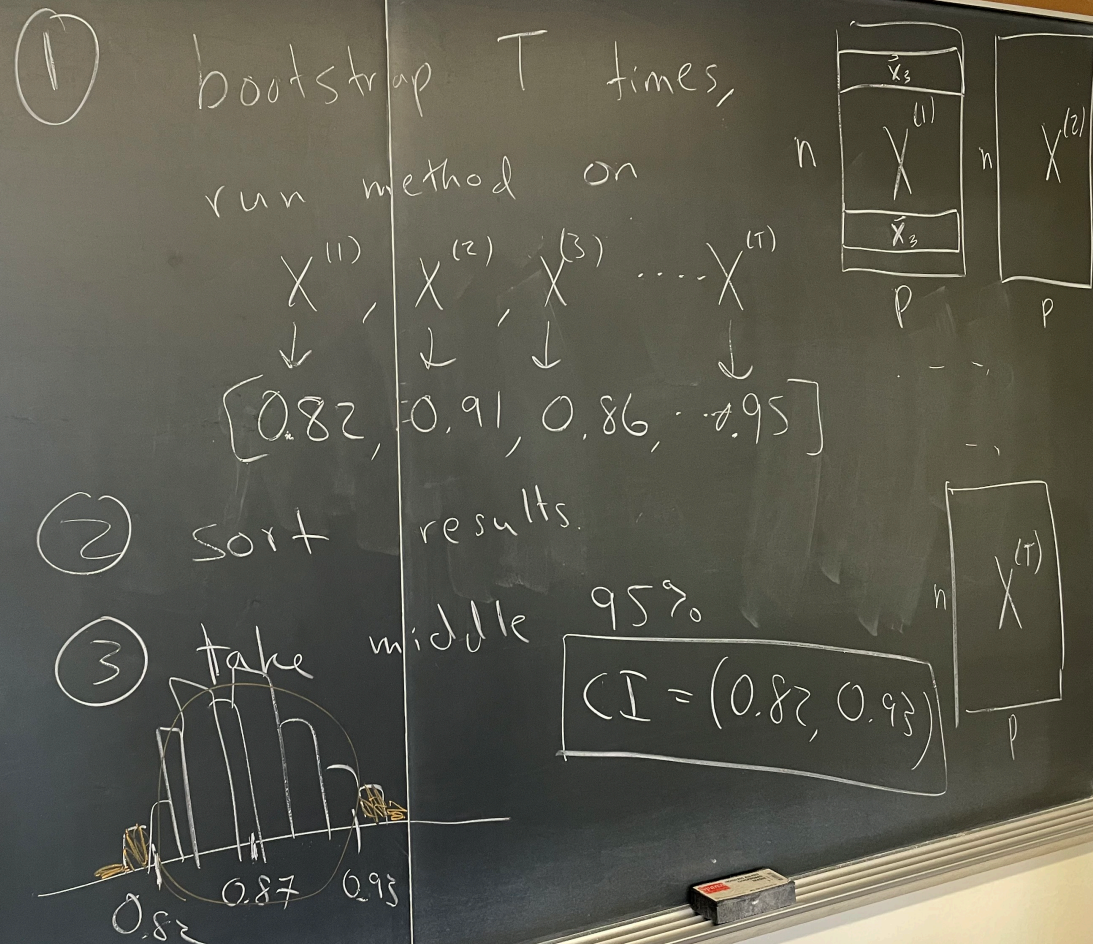 ① bootstrap T times,
run method on
X^(1), X^(2), X^(3) ····· X^(T)
↓ ↓ ↓ ↓
[0.82, 0.91, 0.86, ···0.95]
② sort results.
③ take middle 95%
CI = (0.82, 0.93)
0.82 0.87 0.93
x⃗₃
n X^(1)
x⃗₃
p
n X^(2)
p
n X^(T)
p